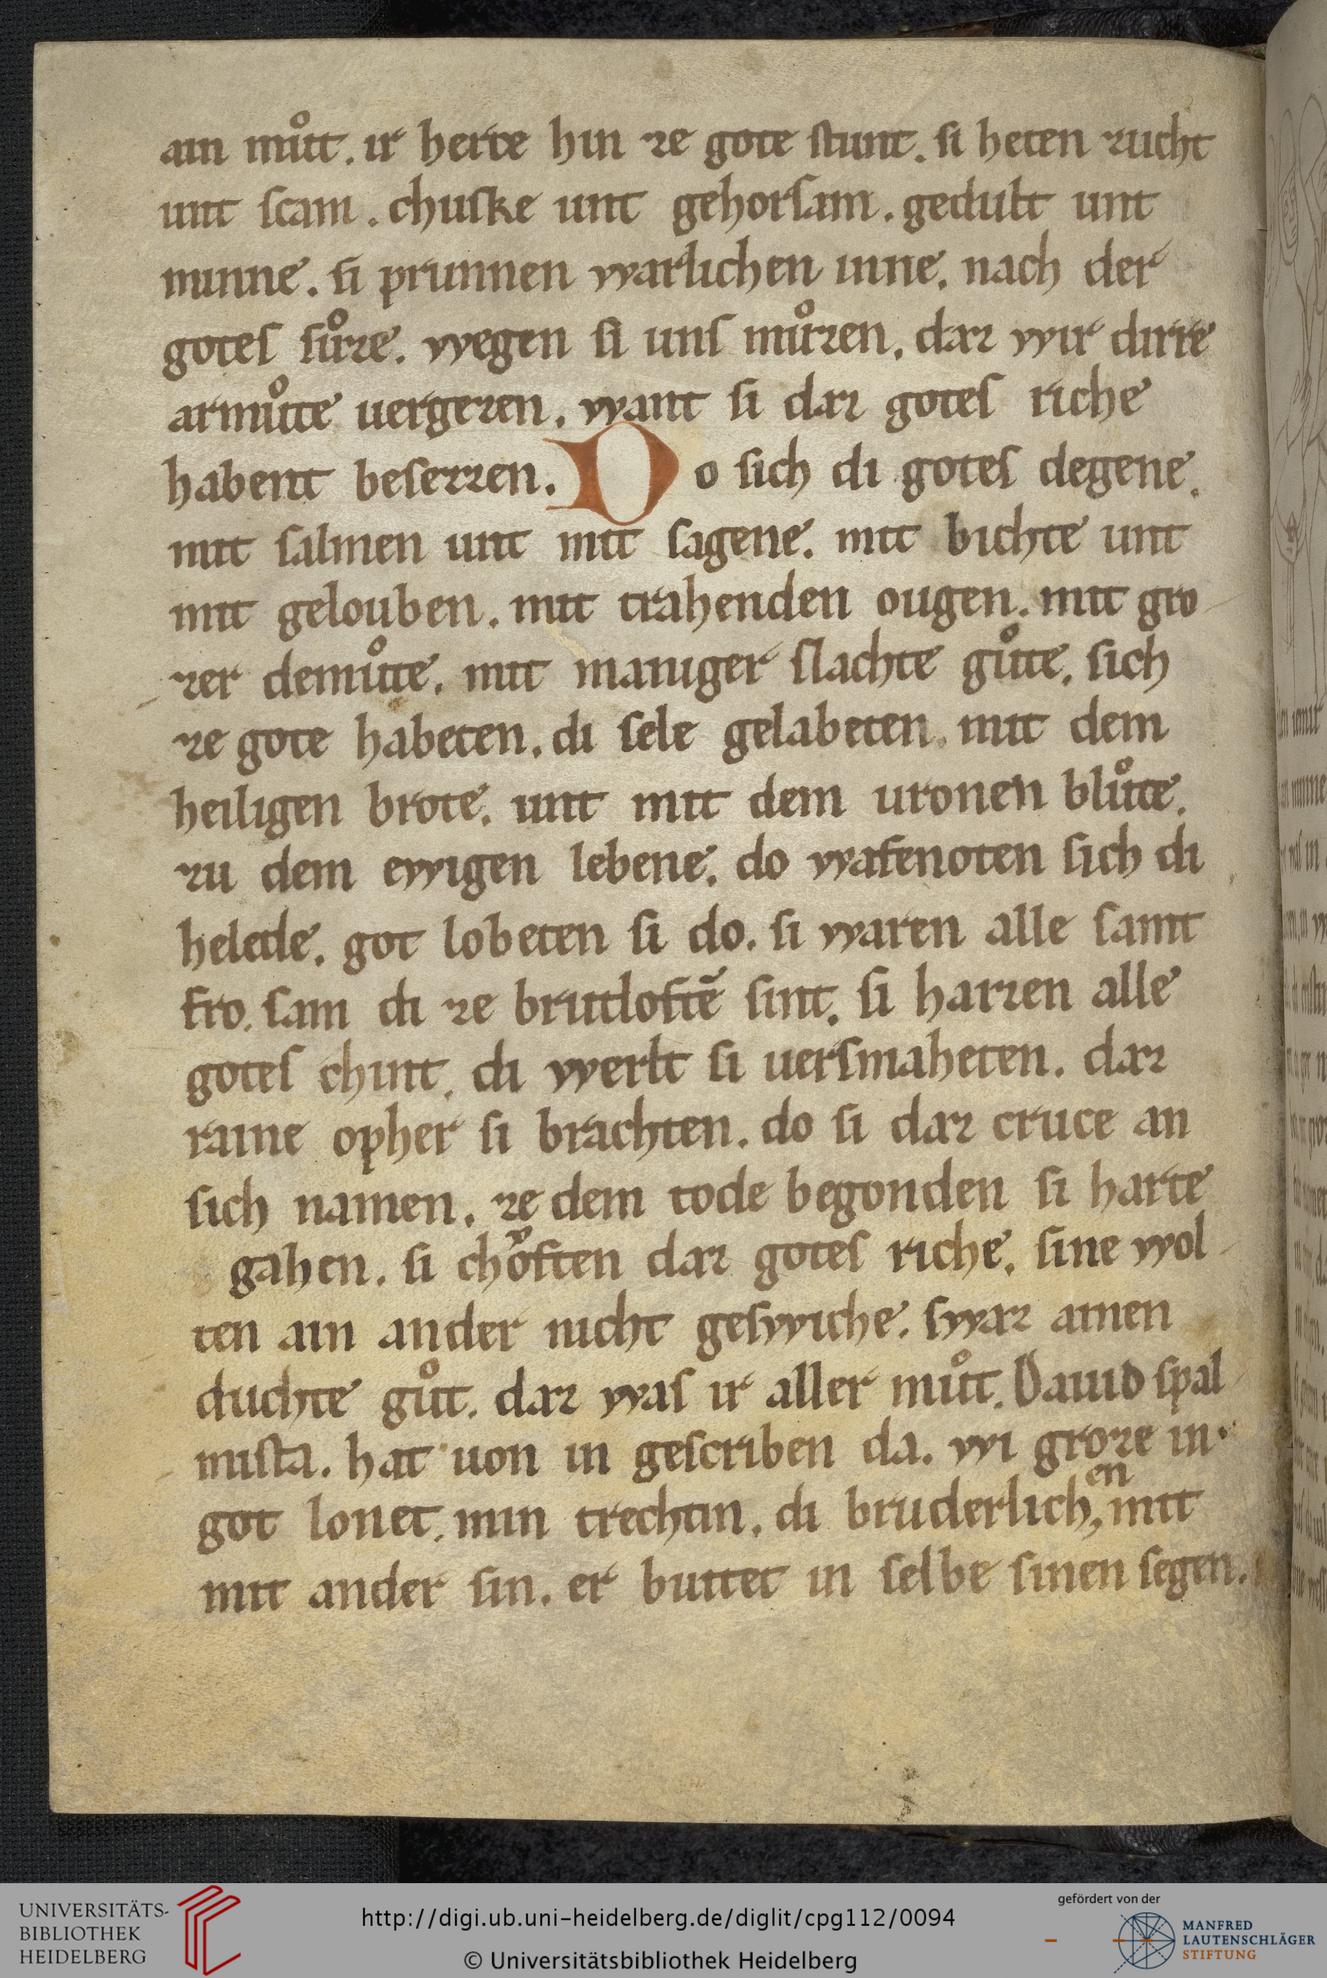 ain můt. ir herce hin ze gote ſtunt. ſi heten zucht
unt ſcam. chuſke unt gehorſam. gedult unt
minne. ſi prunnen warlichen inne. nach der
goteſ ſůze. wegen ſi unſ můzen. daz wir dirre
armůte uergezen. want ſi daz goteſ riche
habent beſezzen. Do ſich di goteſ degene.
mit ſalmen unt mit ſagene. mit bichte unt
mit gelouben. mit trahenden ougen. mit gro
zer demůte. mit maniger ſlachte gůte. ſich
ze gote habeten. di ſele gelabeten. mit dem
heiligen brote. unt mit dem uronen blůte.
zu dem ewigen lebene. do wafenoten ſich di
helede. got lobeten ſi do. ſi waren alle ſamt
fro. ſam di ze brutloftē ſint. ſi haizen alle
goteſ chint. di werlt ſi uerſmaheten. daz
raine opher ſi brachten. do ſi daz cruce an
ſich namen. ze dem tode begonden ſi harte
gahen. ſi choͮften daz goteſ riche. ſine wol
ten ain ander nicht geſwiche. ſwaz ainen
duchte gůt. daz waſ ir aller můt. Dauid ſpal
miſta. hat uon in geſcriben da. wi groze in
got lonet. min trechtin. di bruderlichen mit
mit ander ſin. er buttet in ſelbe ſinen ſegen.
UNIVERSITÄTS-
BIBLIOTHEK
HEIDELBERG
http://digi.ub.uni-heidelberg.de/diglit/cpg112/0094
© Universitätsbibliothek Heidelberg
gefördert von der
MANFRED
LAUTENSCHLÄGER
STIFTUNG